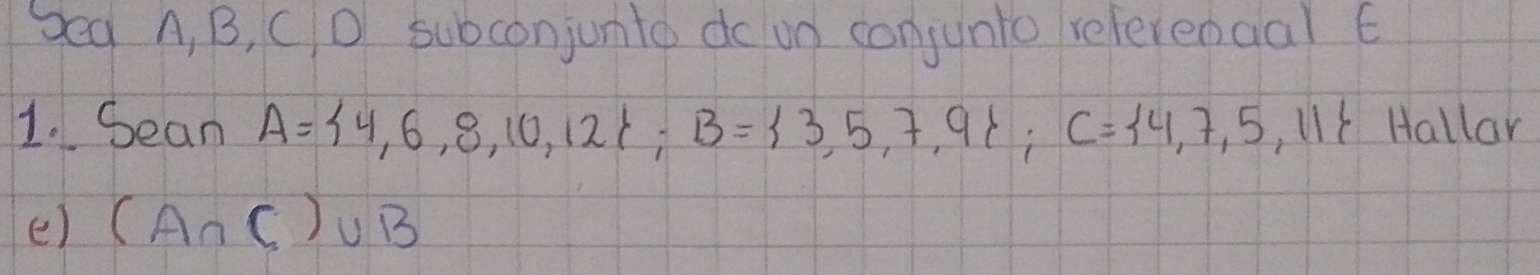 Sea A, B, C, D subconjunto de un conjunto referencial E
1. Sean A={4,6,8,10,12}; B={3,5,7,9}; C={4,7,5,11} Hallar
e) (A∩C)∪B